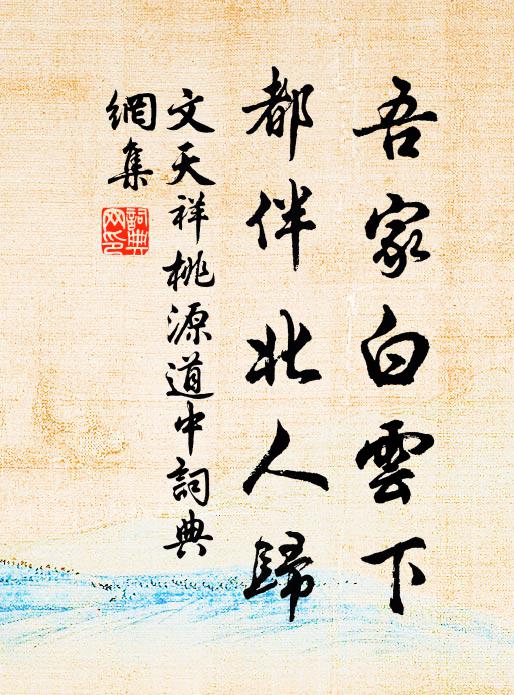 吾家白雲下
都伴北人歸
文天祥桃源道中詞典
網集
詞典網印